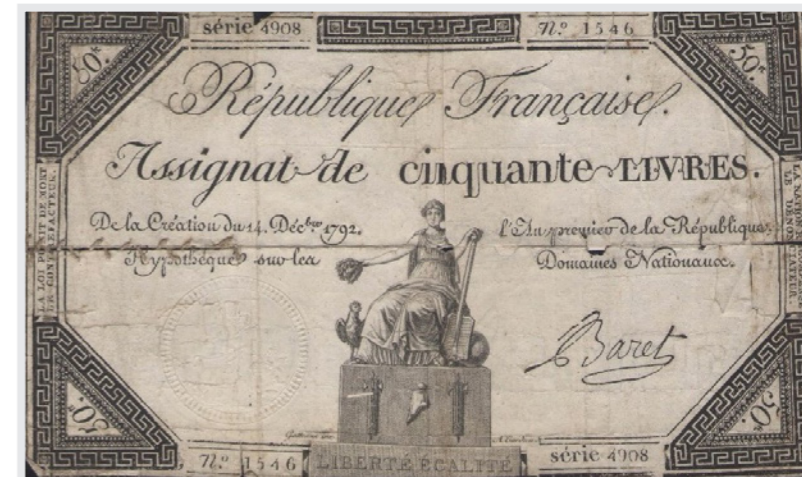 série 4908
N.º 1546
50.#
50.#
République Française.
Assignat de cinquante LIVRES.
De la Création du 14. Déc.bre 1792.
l'An premier de la République.
Hypothéqué sur les
Domaines Nationaux.
LA LOI PUNIT DE MORT
LE CONTREFACTEUR.
LA NATION
LE DÉNONCIATEUR.
Baret
50.#
50.#
N.º 1546
LIBERTÉ ÉGALITÉ
série 4908